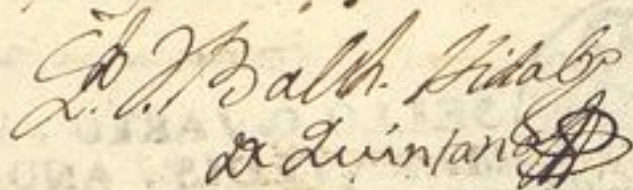 Ldo. J. Balth. Hidalgo
De Quintana